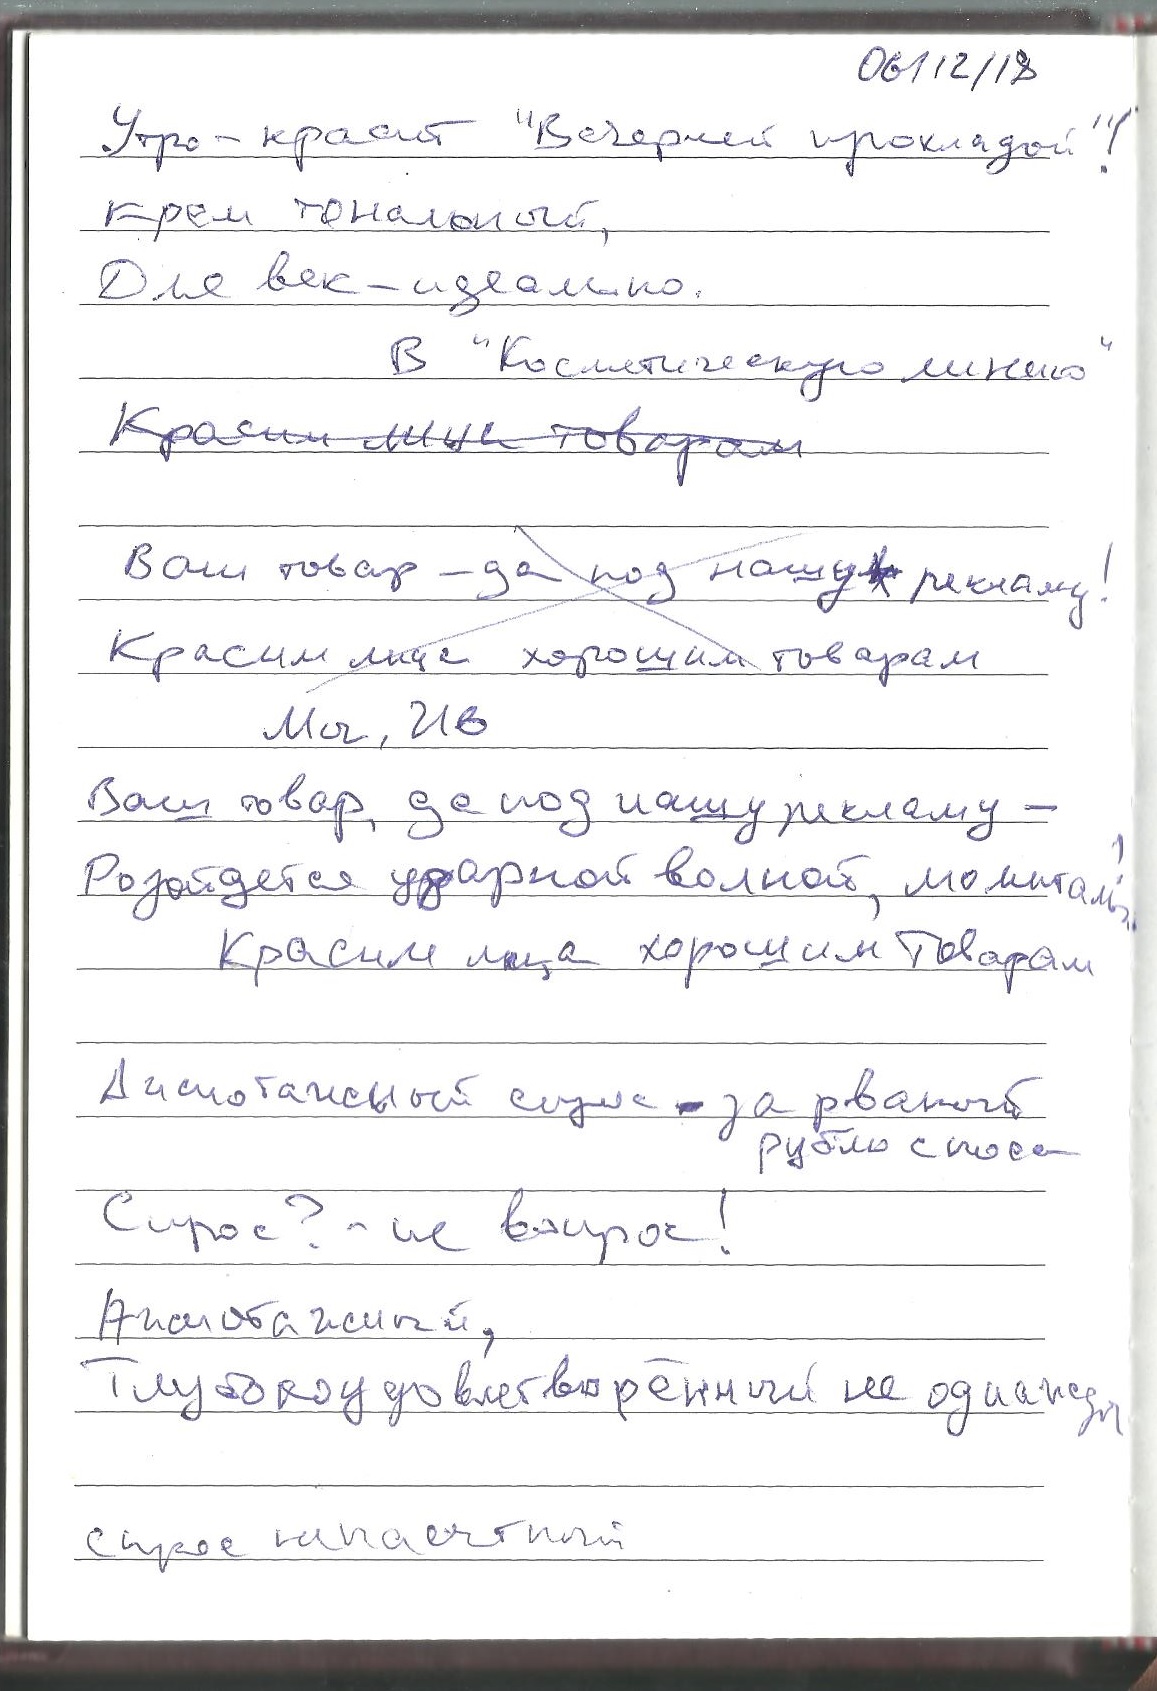 06/12/18
Утро - красит "Вечерней прокладой"!
Крем тональный,
Для век - идеально.
В "Косметическую линию"
Красим лица товарам
Ваш товар - да под нашу рекламу!
Красим лица хорошим товарам
Мы, Ив
Ваш товар, да под нашу рекламу -
Розойдется ударной волной,
Красим лица хорошим Товарам
Ажиотажный спрос - за рваной
рублю
Спрос? - не вопрос!
Ажиотажный,
Глубокоудовлетворённый не однажды
спрос